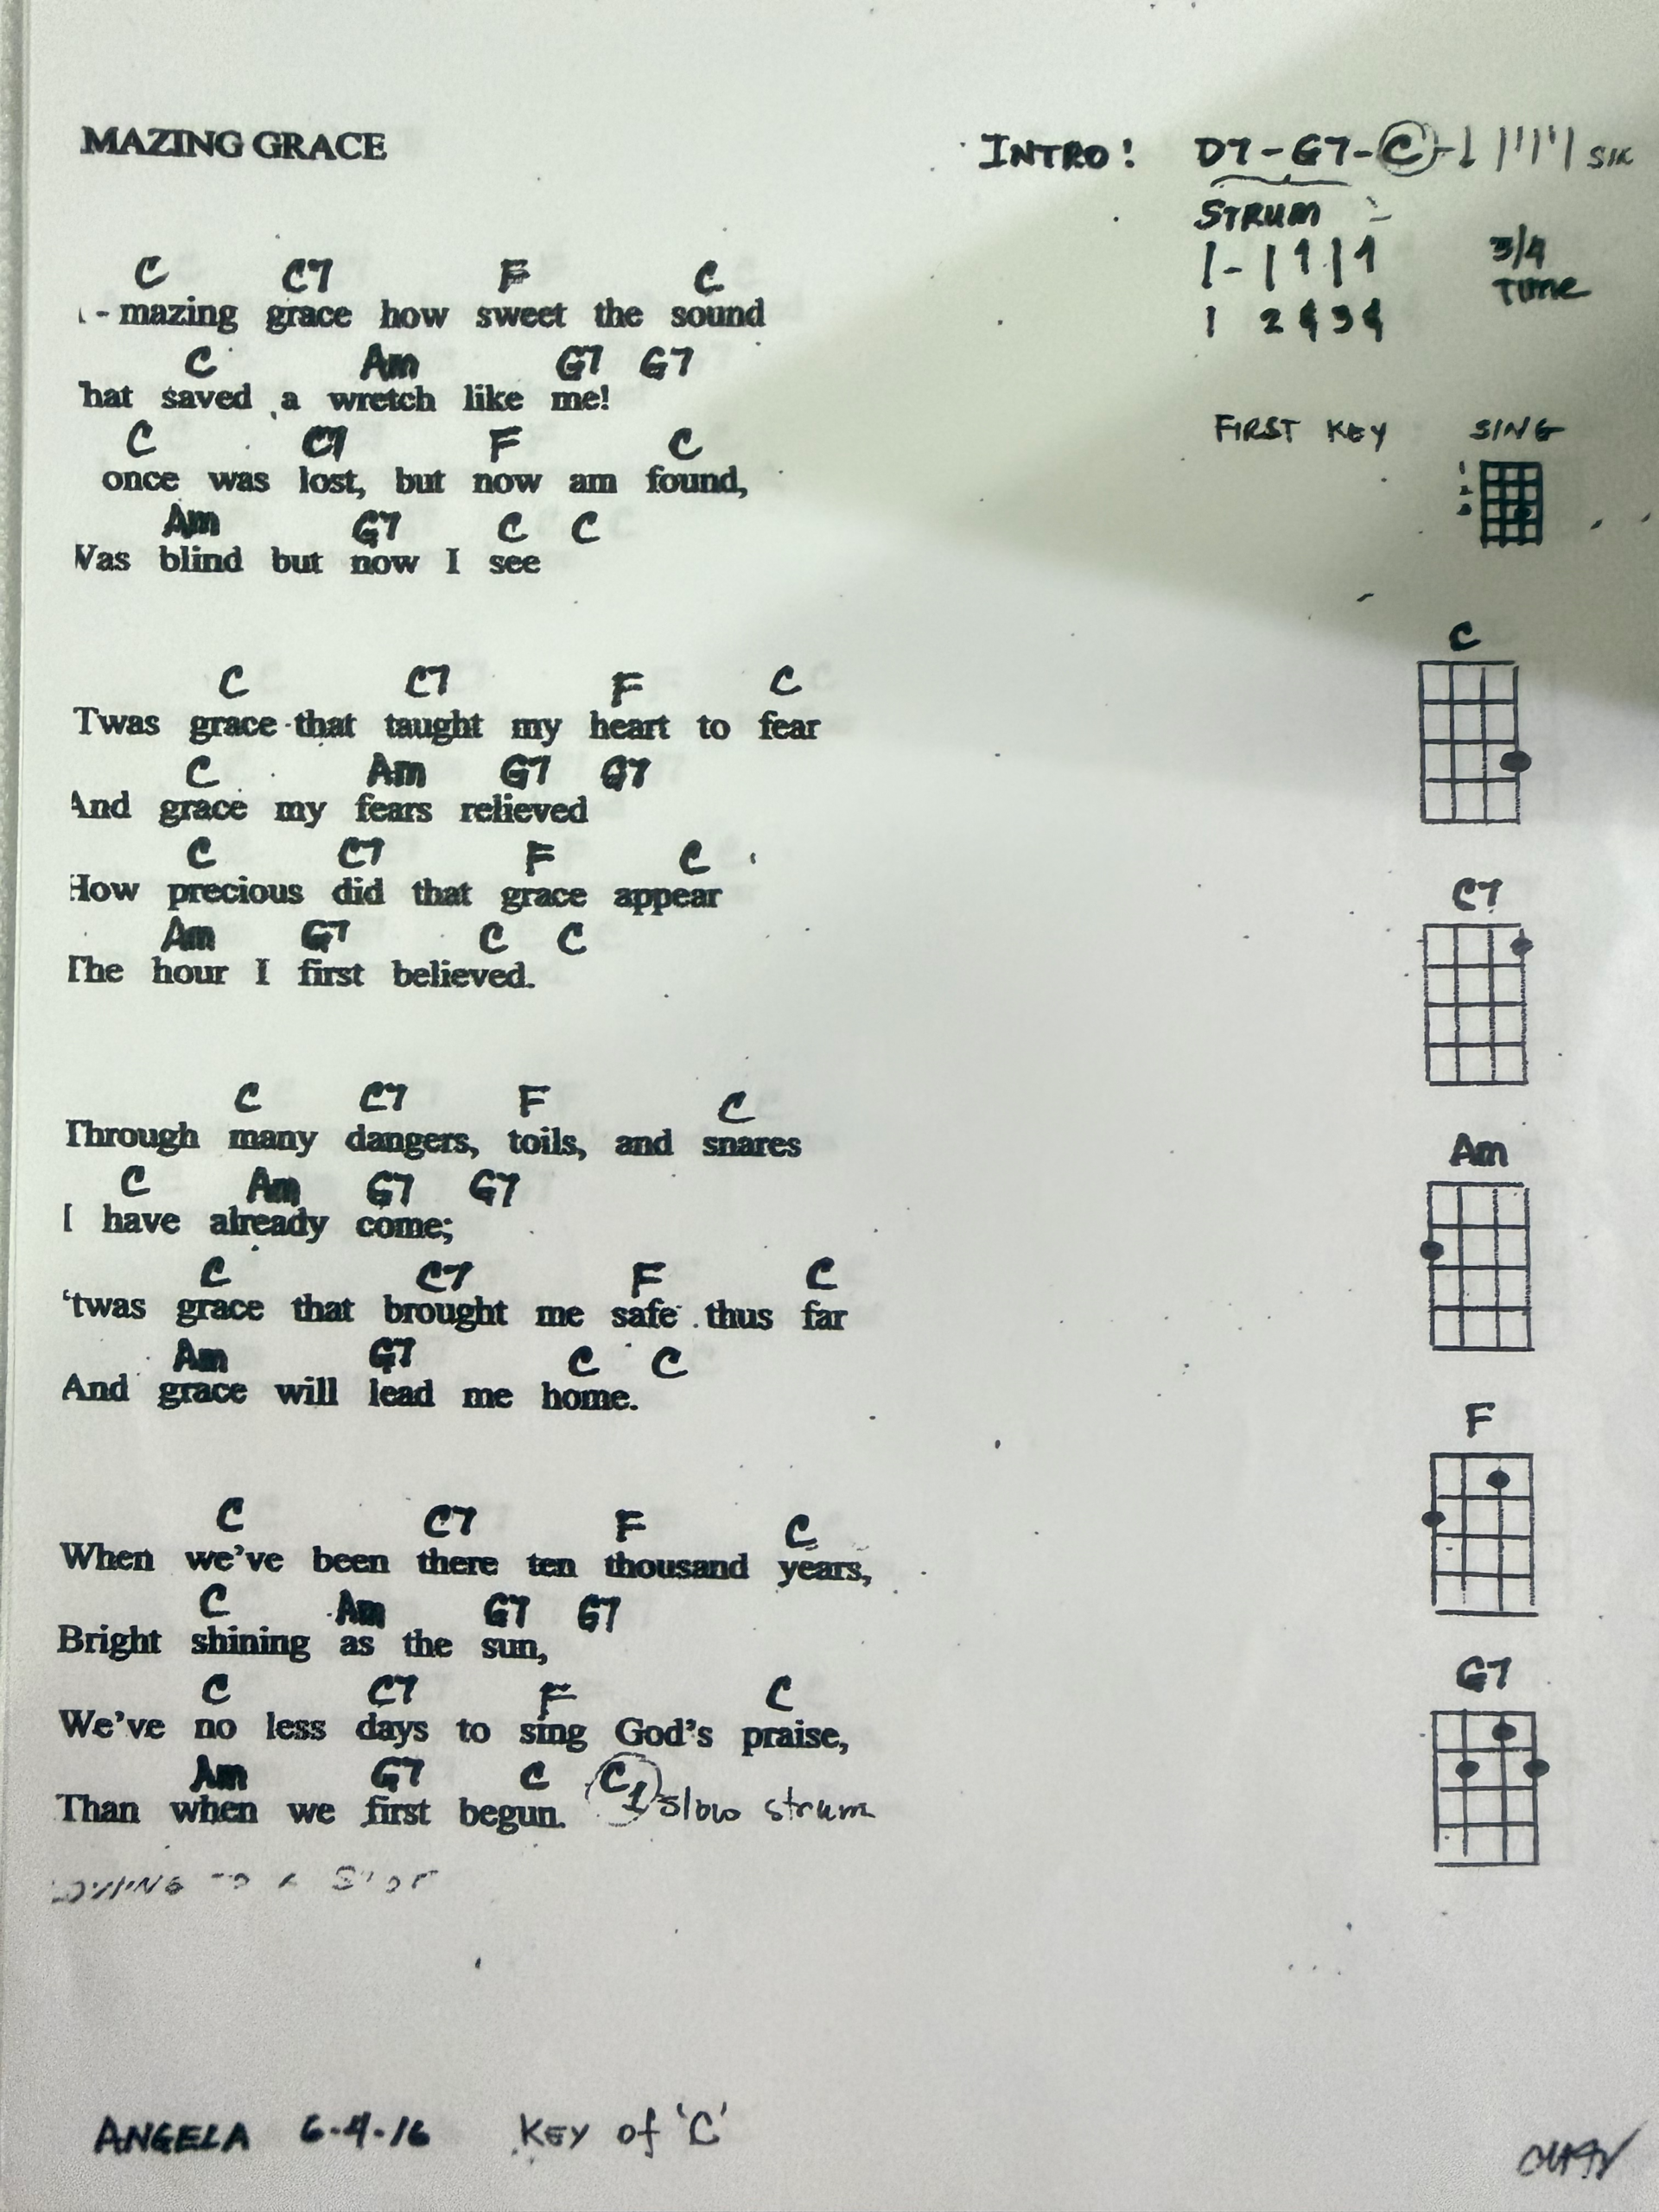 MAZING GRACE
INTRO! D7-G7-C
STRUM
3/4
TIME
1 2 & 3 &
FIRST KEY SING
1
2
3
C C7 F C
- mazing grace how sweet the sound
C Am G7 G7
hat saved a wretch like me!
C C7 F C
once was lost, but now am found,
Am G7 C C
Was blind but now I see
C
C C7 F C
Twas grace that taught my heart to fear
C Am G7 G7
And grace my fears relieved
C C7 F C
How precious did that grace appear
C7
Am G7 C C
The hour I first believed.
C C7 F C
Through many dangers, toils, and snares
Am
C Am G7 G7
I have already come;
C C7 F C
'twas grace that brought me safe thus far
Am G7 C C
And grace will lead me home.
F
C C7 F C
When we've been there ten thousand years,
C Am G7 G7
Bright shining as the sun,
G7
C C7 F C
We've no less days to sing God's praise,
Am G7 C C
Than when we first begun. 1 slow strum
ANGELA 6-4-16 KEY of 'C'